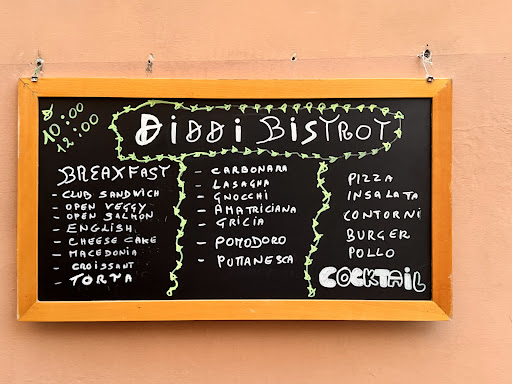 10:00
12:00
DiDDi BISTROT
BREAKFAST
- CLUB SANDWICH
- OPEN VEGGY
- OPEN SALMON
- ENGLISH
- CHEESE CAKE
- MACEDONIA
- CROISSANT
- TORTA
- CARBONARA
- LASAGNA
- GNOCCHI
- AMATRICIANA
- GRICIA
- POMODORO
- PUTTANESCA
PIZZA
INSALATA
CONTORNI
BURGER
POLLO
COCKTAIL